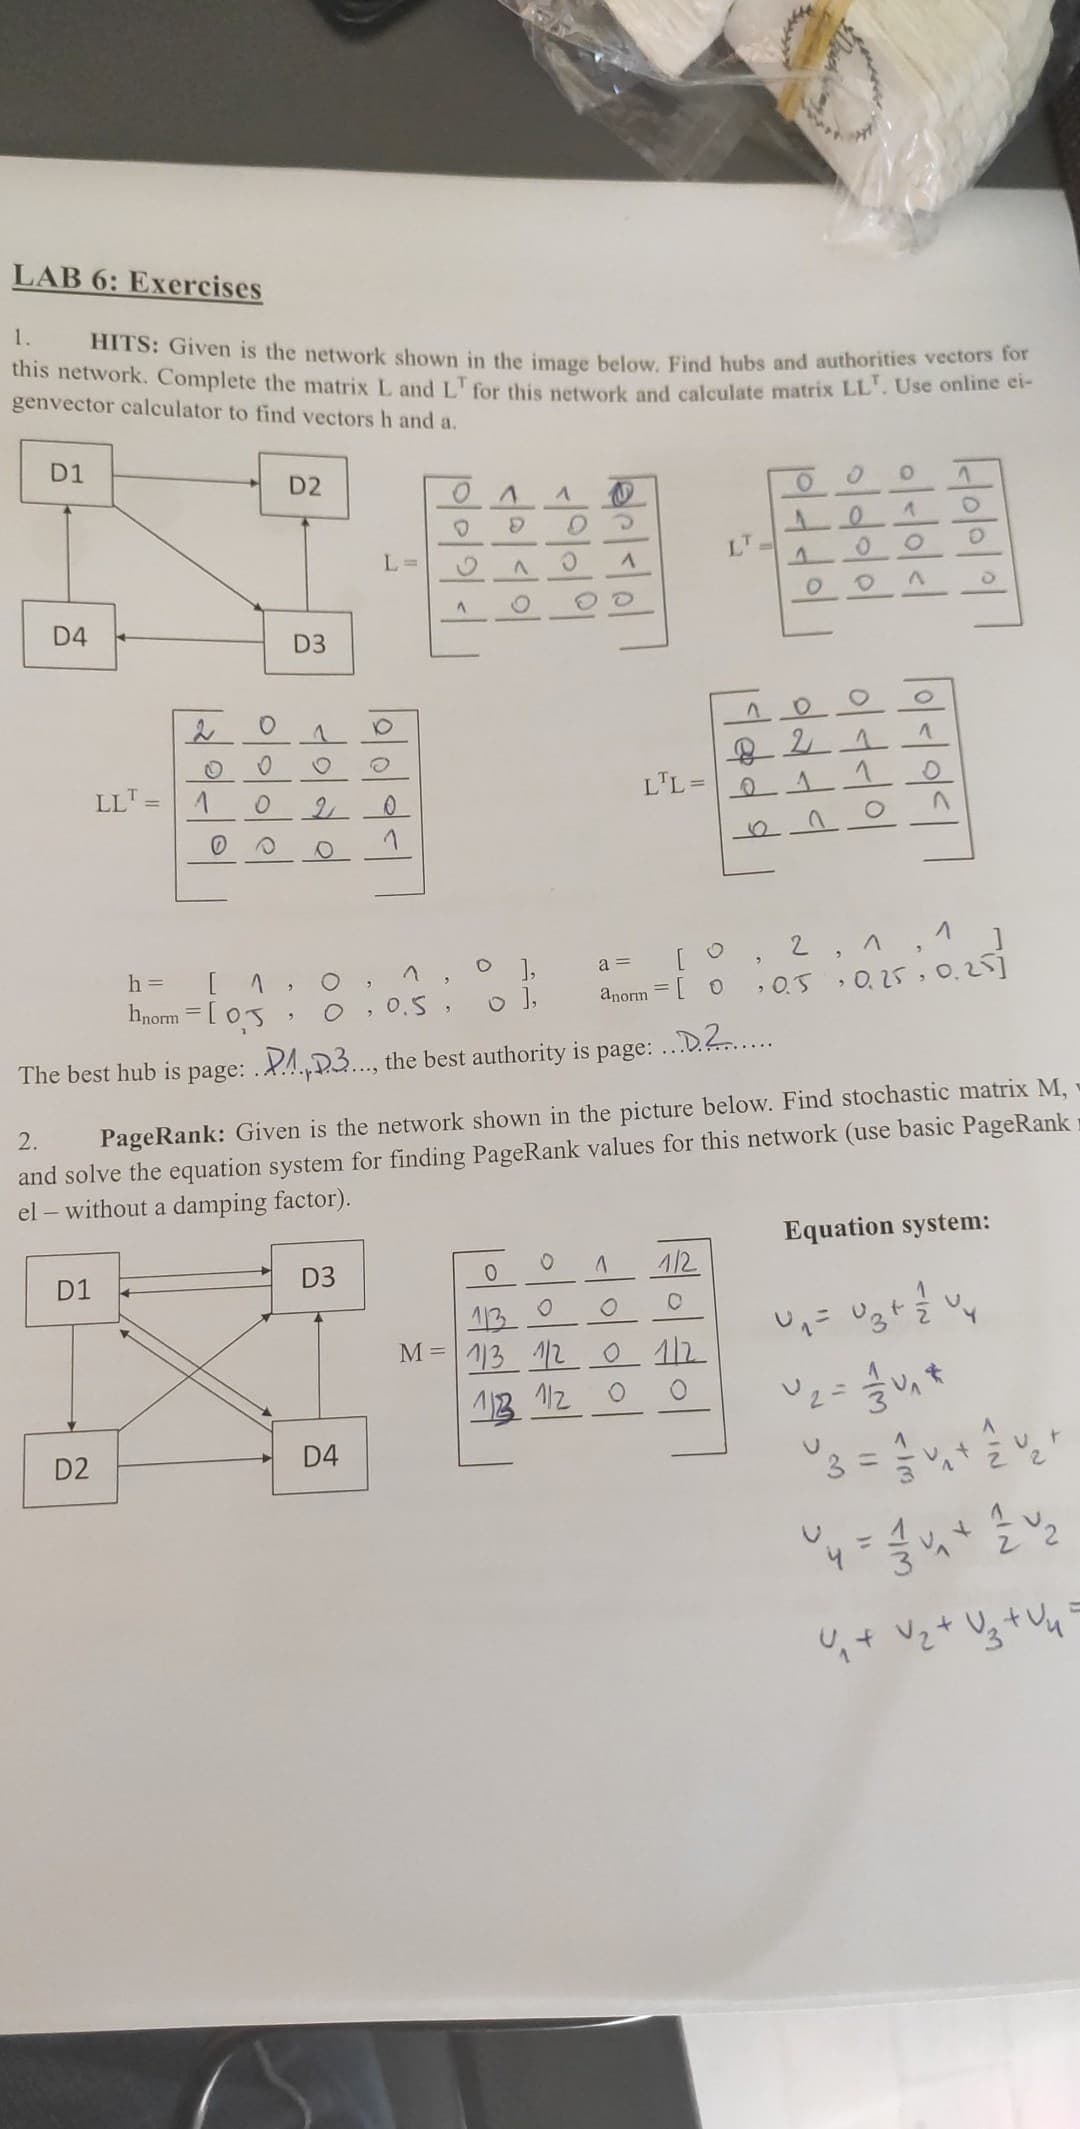 LAB 6: Exercises
1. HITS: Given is the network shown in the image below. Find hubs and authorities vectors for
this network. Complete the matrix L and Lᵀ for this network and calculate matrix LLᵀ. Use online ei-
genvector calculator to find vectors h and a.
D1
D2
D4
D3
L =
0 1 1 0
0 0 0 0
0 1 0 1
1 0 0 0
Lᵀ =
0 0 0 1
1 0 1 0
1 0 0 0
0 0 1 0
LLᵀ =
2 0 1 0
0 0 0 0
1 0 2 0
0 0 0 1
LᵀL =
1 0 0 0
0 2 1 1
0 1 1 0
0 1 0 1
h = [ 1 , 0 , 1 , 0 ], a = [ 0 , 2 , 1 , 1 ]
hnorm = [ 0,5 , 0 , 0.5 , 0 ], anorm = [ 0 , 0.5 , 0.25 , 0.25]
The best hub is page: .D1.,D3..., the best authority is page: ...D.2......
2. PageRank: Given is the network shown in the picture below. Find stochastic matrix M,
and solve the equation system for finding PageRank values for this network (use basic PageRank
el – without a damping factor).
Equation system:
D1
D3
D2
D4
M =
0 0 1 1/2
1/3 0 0 0
1/3 1/2 0 1/2
1/3 1/2 0 0
v₁ = v₃ + 1/2 v₄
v₂ = 1/3 v₁
v₃ = 1/3 v₁ + 1/2 v₂ +
v₄ = 1/3 v₁ + 1/2 v₂
v₁ + v₂ + v₃ + v₄ =